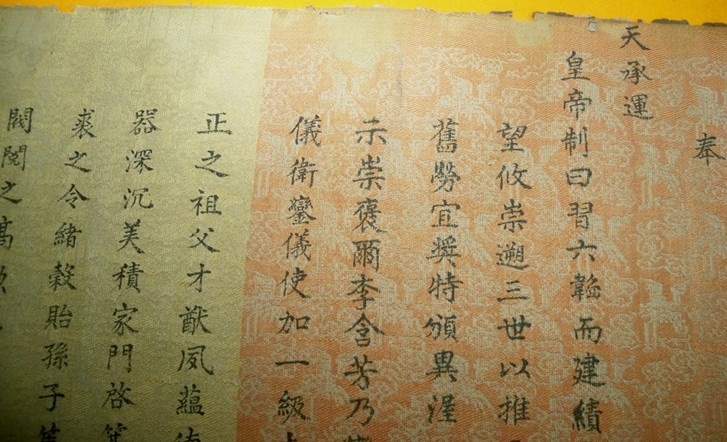 奉
天承運
皇帝制曰習六韜而建績
望攸崇遡三世以推
舊勞宜奬特頒異渥
示崇褒爾李含芳乃
儀衛鑾儀使加一級
正之祖父才猷夙蘊
器深沉美積家門啓
裘之令緒穀貽孫子
閥閱之高